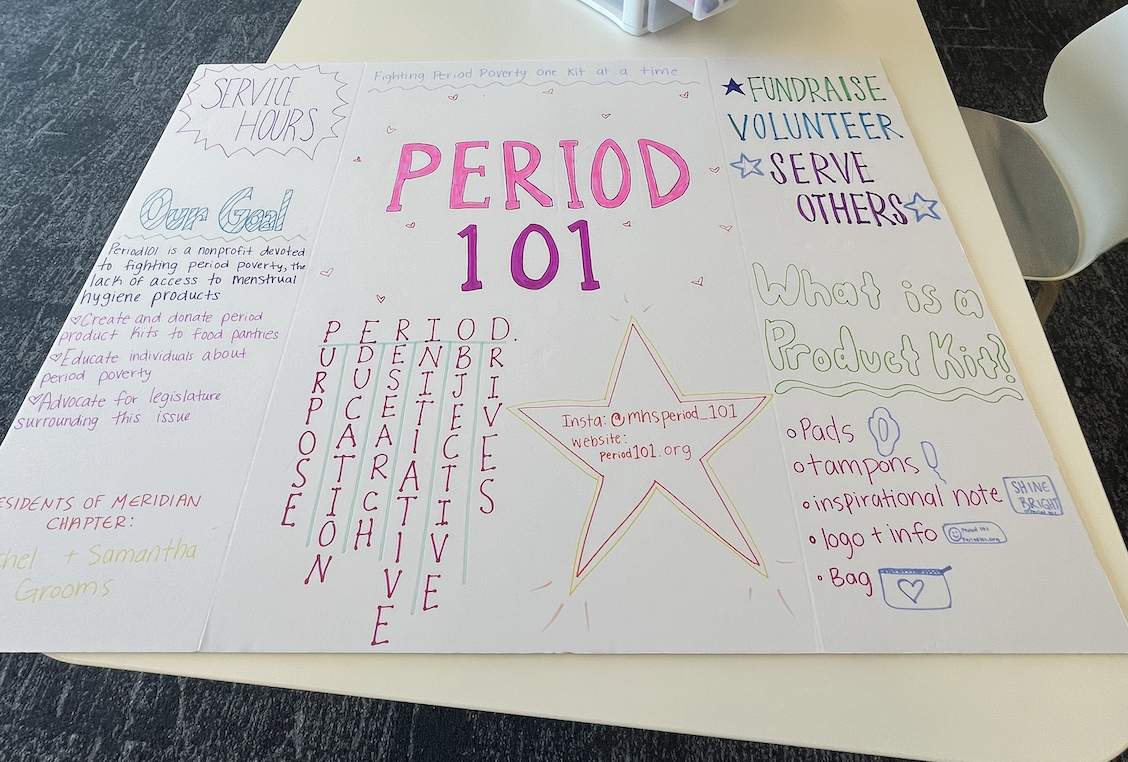 SERVICE
HOURS
Our Goal
Period101 is a nonprofit devoted
to fighting period poverty, the
lack of access to menstrual
hygiene products
Create and donate period
product kits to food pantries
Educate individuals about
period poverty
Advocate for legislature
surrounding this issue
ESIDENTS OF MERIDIAN
CHAPTER:
hel + Samantha
Grooms
Fighting Period Poverty One Kit at a time
PERIOD
101
P.E.R.I.O.D.
PURPOSE
EDUCATION
RESEARCH
INITIATIVE
OBJECTIVE
DRIVES
Insta: @mhsperiod_101
website:
period101.org
FUNDRAISE
VOLUNTEER
SERVE
OTHERS
What is a
Product Kit?
Pads
tampons
inspirational note
SHINE
BRIGHT
logo + info
Period 101
Period101.org
Bag